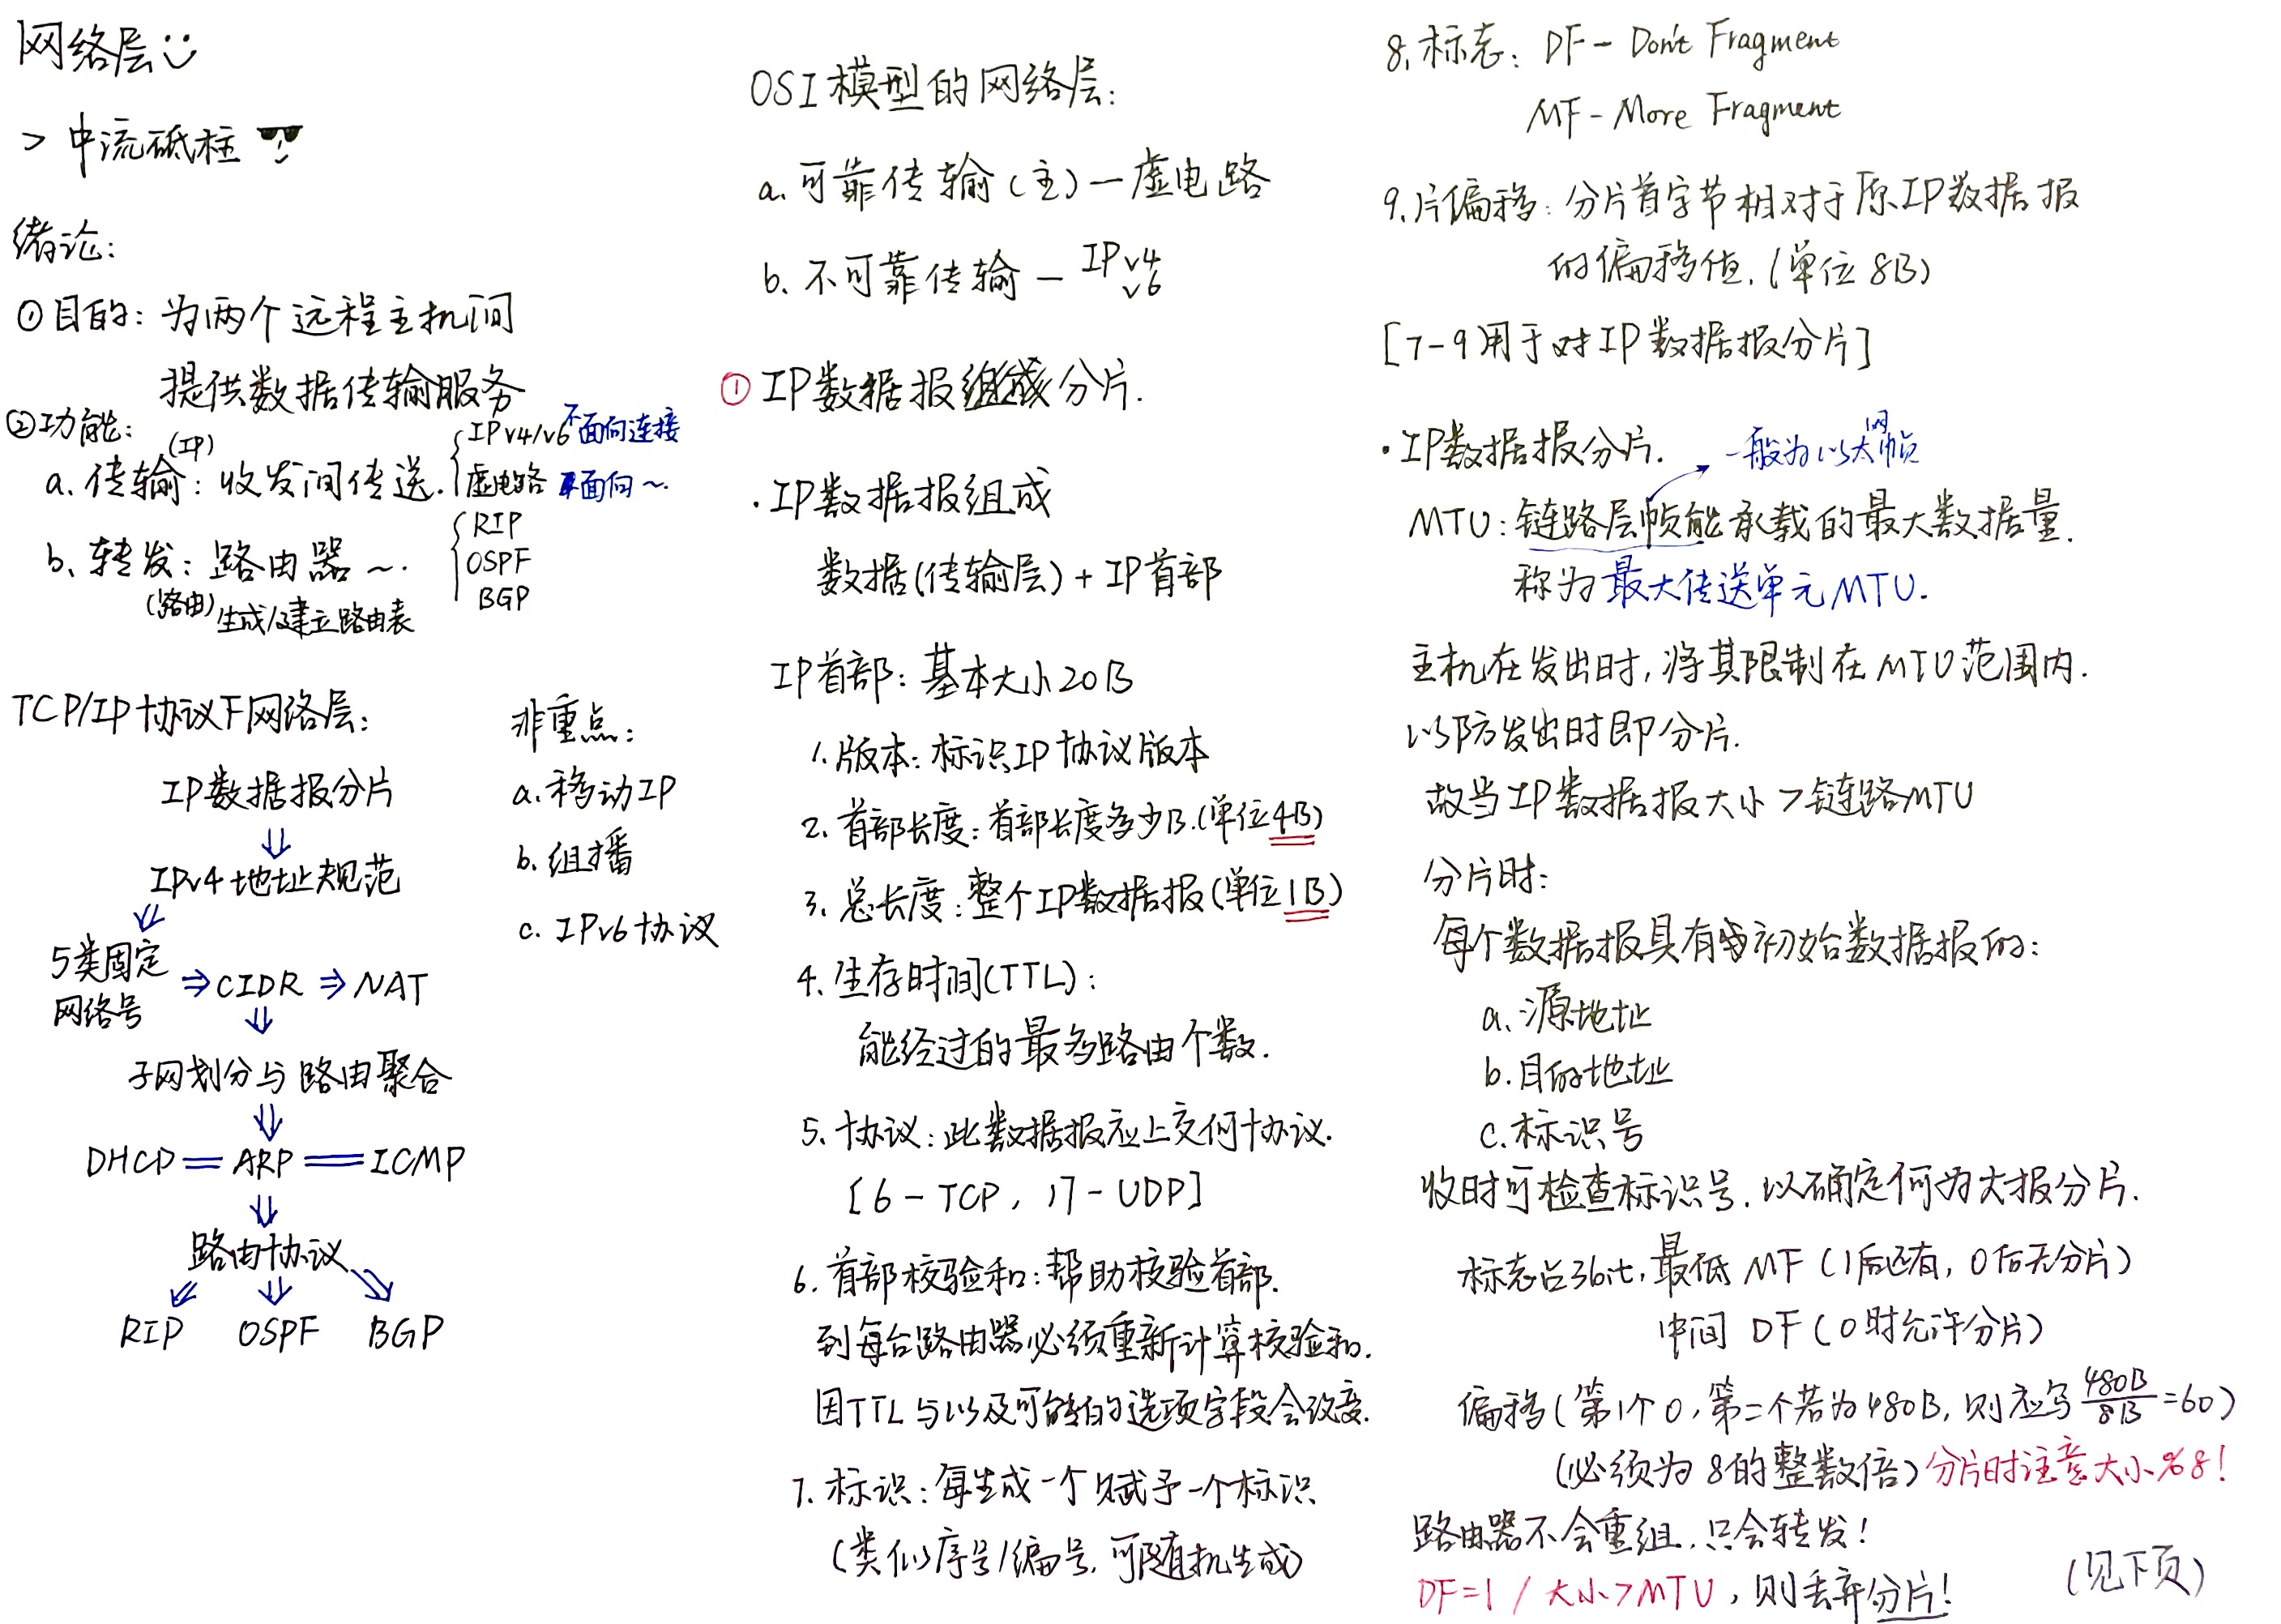 网络层
> 中流砥柱
绪论:
①目的: 为两个远程主机间
提供数据传输服务
②功能:
(IP)
a. 传输: 收发间传送.
IPv4/v6 不面向连接
虚电路 面向~.
b. 转发: 路由器~.
(路由) 生成/建立路由表
RIP
OSPF
BGP
TCP/IP协议下网络层:
IP数据报分片
⇓
IPv4地址规范
⇙
5类固定
网络号
⇒ CIDR ⇒ NAT
⇓
子网划分与路由聚合
⇓
DHCP = ARP = ICMP
⇓
路由协议
⇙ ⇓ ⇘
RIP OSPF BGP
非重点:
a. 移动IP
b. 组播
c. IPv6协议
OSI模型的网络层:
a. 可靠传输(主) — 虚电路
b. 不可靠传输 — IPv4
v6
① IP数据报组成 分片.
· IP数据报组成
数据(传输层) + IP首部
IP首部: 基本大小20B
1. 版本: 标识IP协议版本
2. 首部长度: 首部长度多少B.(单位4B)
3. 总长度: 整个IP数据报(单位1B)
4. 生存时间(TTL):
能经过的最多路由个数.
5. 协议: 此数据报应上交何协议.
[6-TCP, 17-UDP]
6. 首部校验和: 帮助校验首部.
到每台路由器必须重新计算校验和.
因TTL与以及可能的选项字段会改变.
7. 标识: 每生成一个赋予一个标识
(类似序号/编号, 可随机生成)
8. 标志: DF - Don't Fragment
MF - More Fragment
9. 片偏移: 分片首字节相对于原IP数据报
的偏移值. (单位8B)
[7-9用于对IP数据报分片]
· IP数据报分片.
一般为以太网帧
MTU: 链路层帧能承载的最大数据量.
称为最大传送单元MTU.
主机在发出时, 将其限制在MTU范围内.
以防发出时即分片.
故当IP数据报大小>链路MTU
分片时:
每个数据报具有初始数据报的:
a. 源地址
b. 目的地址
c. 标识号
收时可检查标识号. 以确定何为大报分片.
标志占3bit, 最低MF (1后还有, 0后无分片)
中间 DF (0时允许分片)
偏移(第1个0, 第二个若为480B, 则应写 480B/8B=60)
(必须为8的整数倍) 分片时注意大小%8!
路由器不会重组, 只会转发!
DF=1 / 大小>MTU, 则丢弃分片!
(见下页)